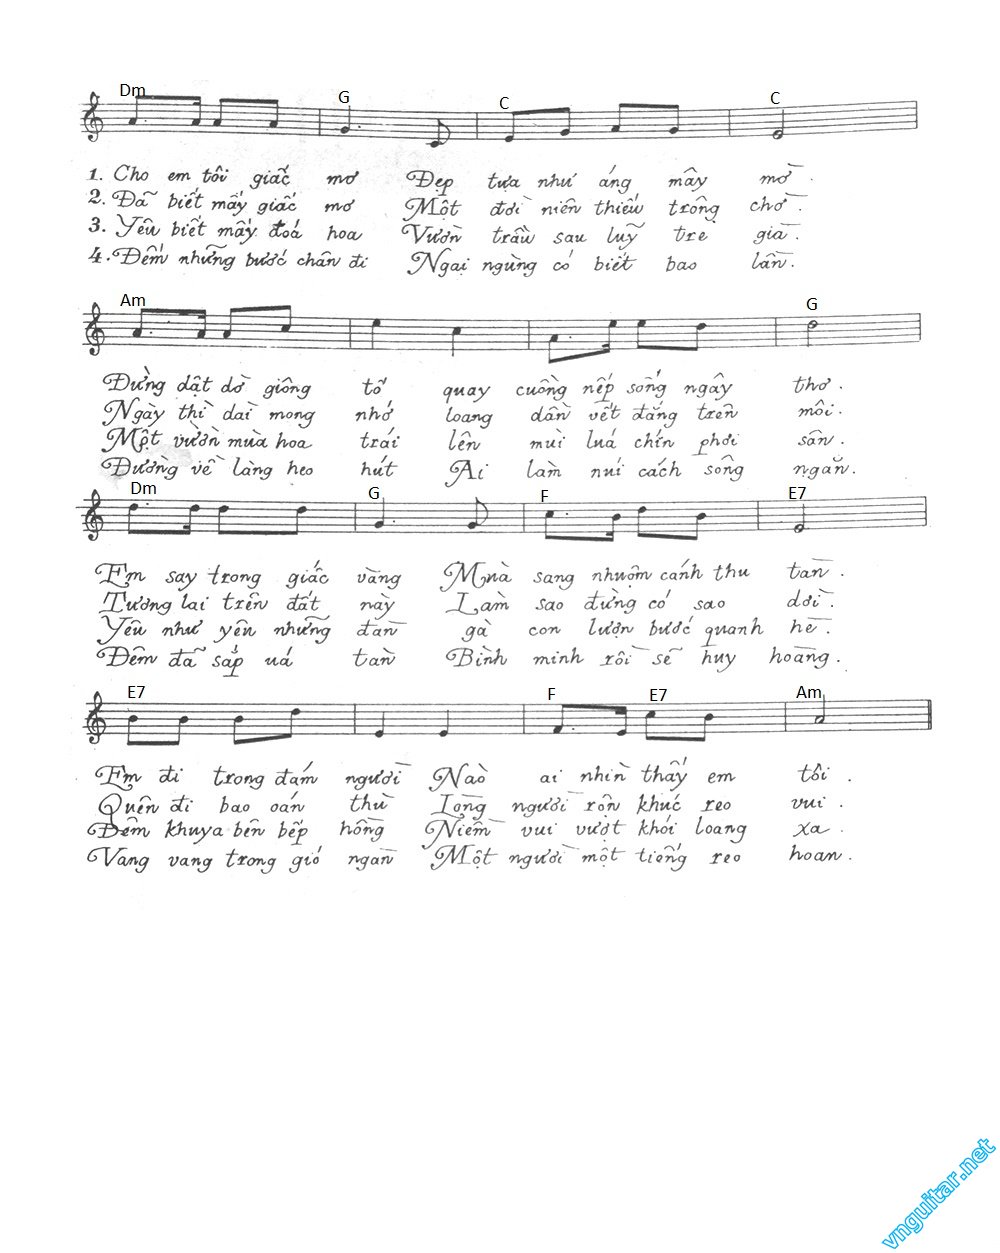 Dm G C C
1. Cho em tôi giấc mơ Đẹp tựa như áng mây mờ.
2. Đã biết mấy giấc mơ Một đời niên thiếu trông chờ.
3. Yêu biết mấy đoá hoa Vườn trầu sau luỹ tre già.
4. Đếm những bước chân đi Ngại ngùng có biết bao lần.
Am G
Đừng dật dờ giông tố quay cuồng nếp sống ngây thơ.
Ngày thì dài mong nhớ loang dần vết đắng trên môi.
Một vườn mùa hoa trái lên mùi luá chín phơi sân.
Đường về làng heo hút Ai làm núi cách sông ngăn.
Dm G F E7
Em say trong giấc vàng Muà sang nhuộm cánh thu tàn.
Tương lai trên đất này Làm sao đừng có sao dời.
Yêu như yêu những đàn gà con lượn bước quanh hè.
Đêm đã sắp uá tàn Bình minh rồi sẽ huy hoàng.
E7 F E7 Am
Em đi trong đám người Nào ai nhìn thấy em tôi.
Quên đi bao oán thù Lòng người rộn khúc reo vui.
Đêm khuya bên bếp hồng Niềm vui vượt khói loang xa.
Vang vang trong gió ngàn Một người một tiếng reo hoan.
vnguitar.net